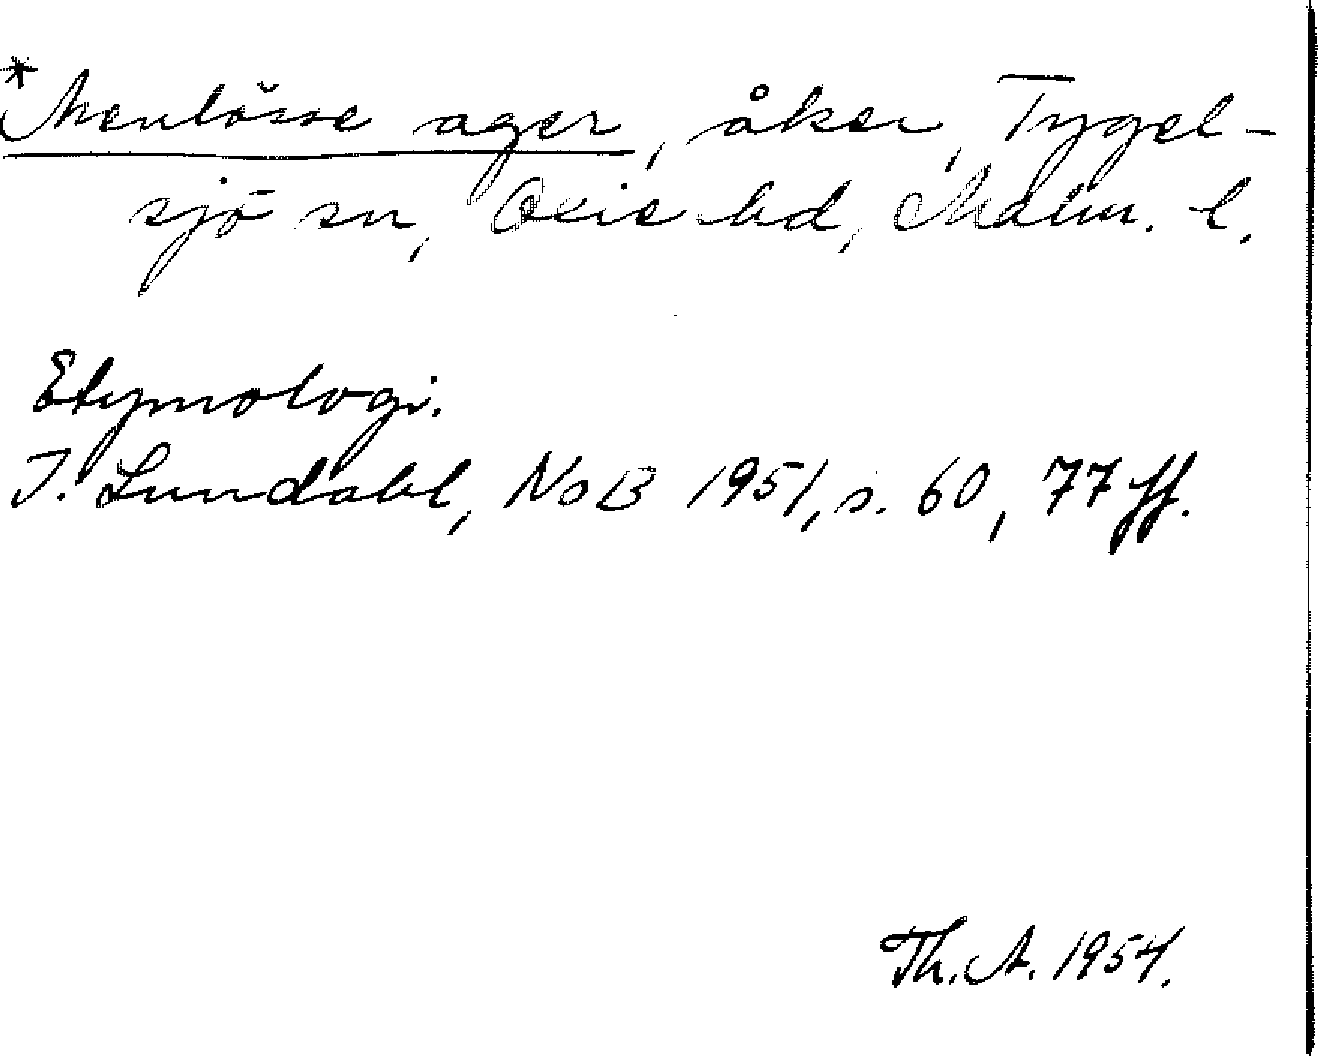 *Menlösse ager, åker, Tygel-
sjö sn, Oxie hd, Malm. l.
Etymologi.
I. Lundahl, NoB 1951, s. 60, 77 ff.
Th. A. 1954.